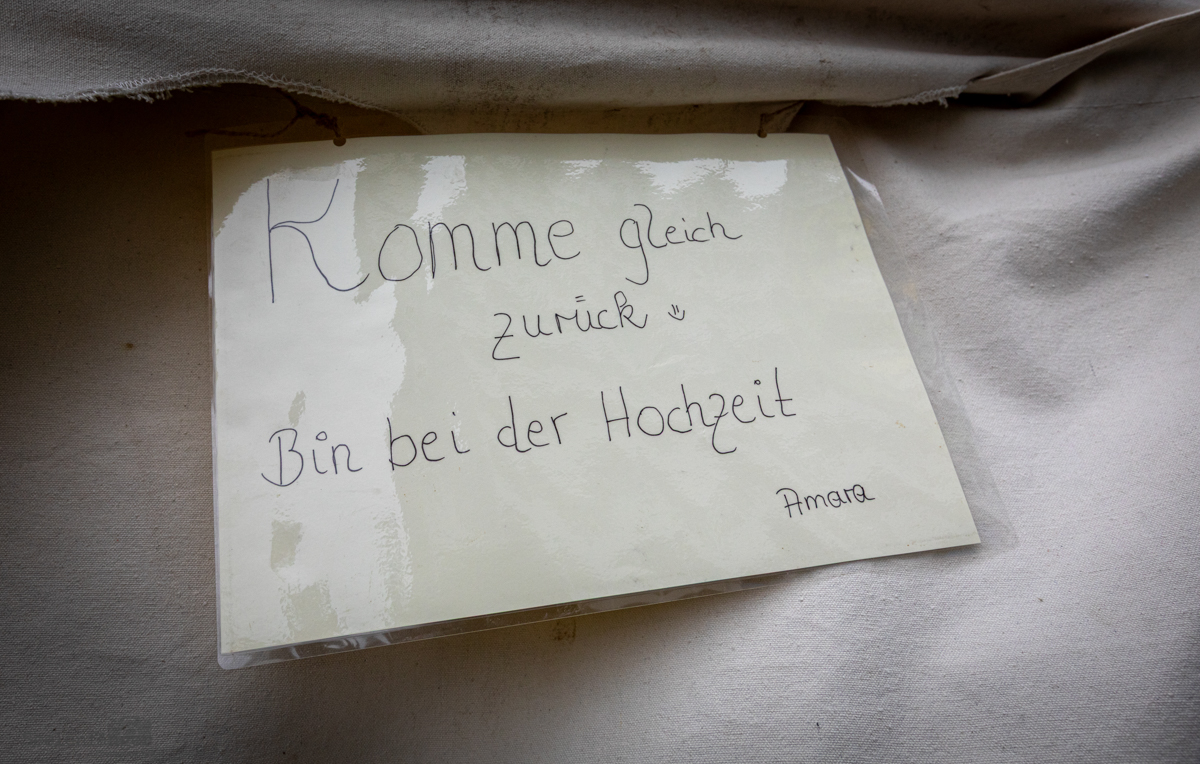 Komme gleich
zurück
Bin bei der Hochzeit
Amara